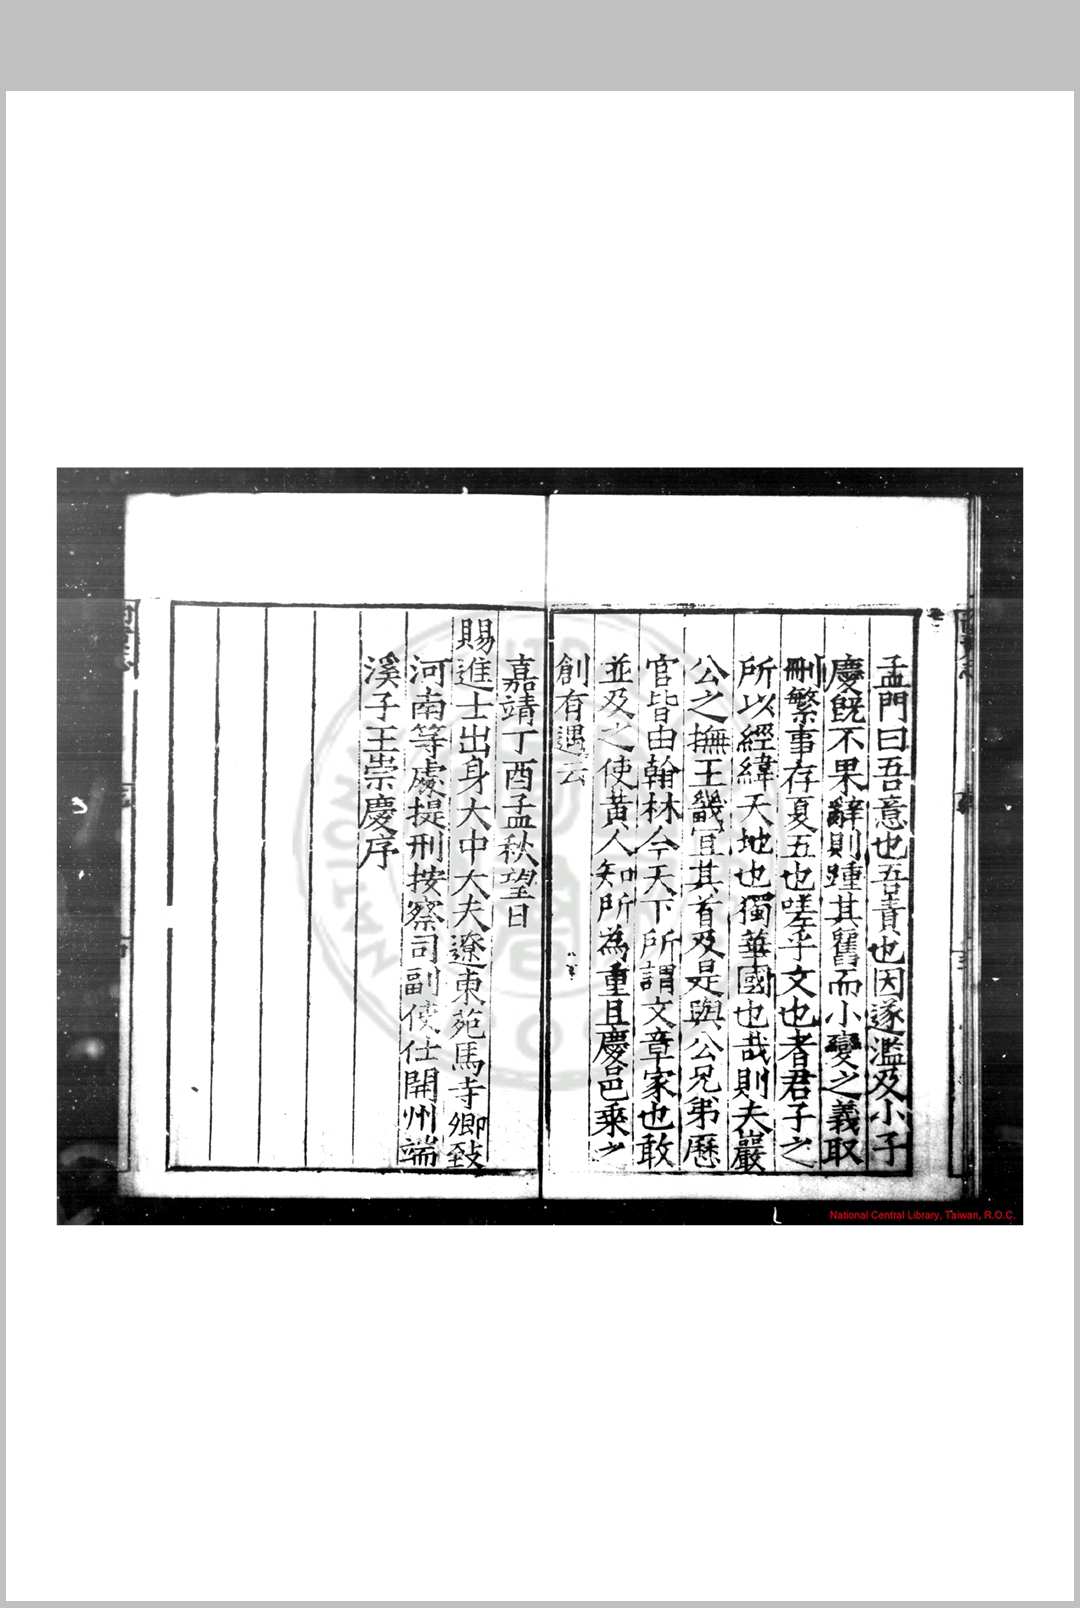 孟門曰吾意也吾責也因遂濫及小子
慶旣不果辭則踵其舊而小變之義取
刪繁事存夏五也嗟乎文也者君子之
所以經緯天地也獨華國也哉則夫嚴
公之撫王畿冝其首及是與公兄弟歷
官皆由翰林今天下所謂文章家也敢
並及之使黃人知所為重且慶邑乘之
創有遇云
嘉靖丁酉孟秋望日
賜進士出身大中大夫遼東苑馬寺卿致
河南等處提刑按察司副使仕開州端
溪子王崇慶序
National Central Library, Taiwan, R.O.C.